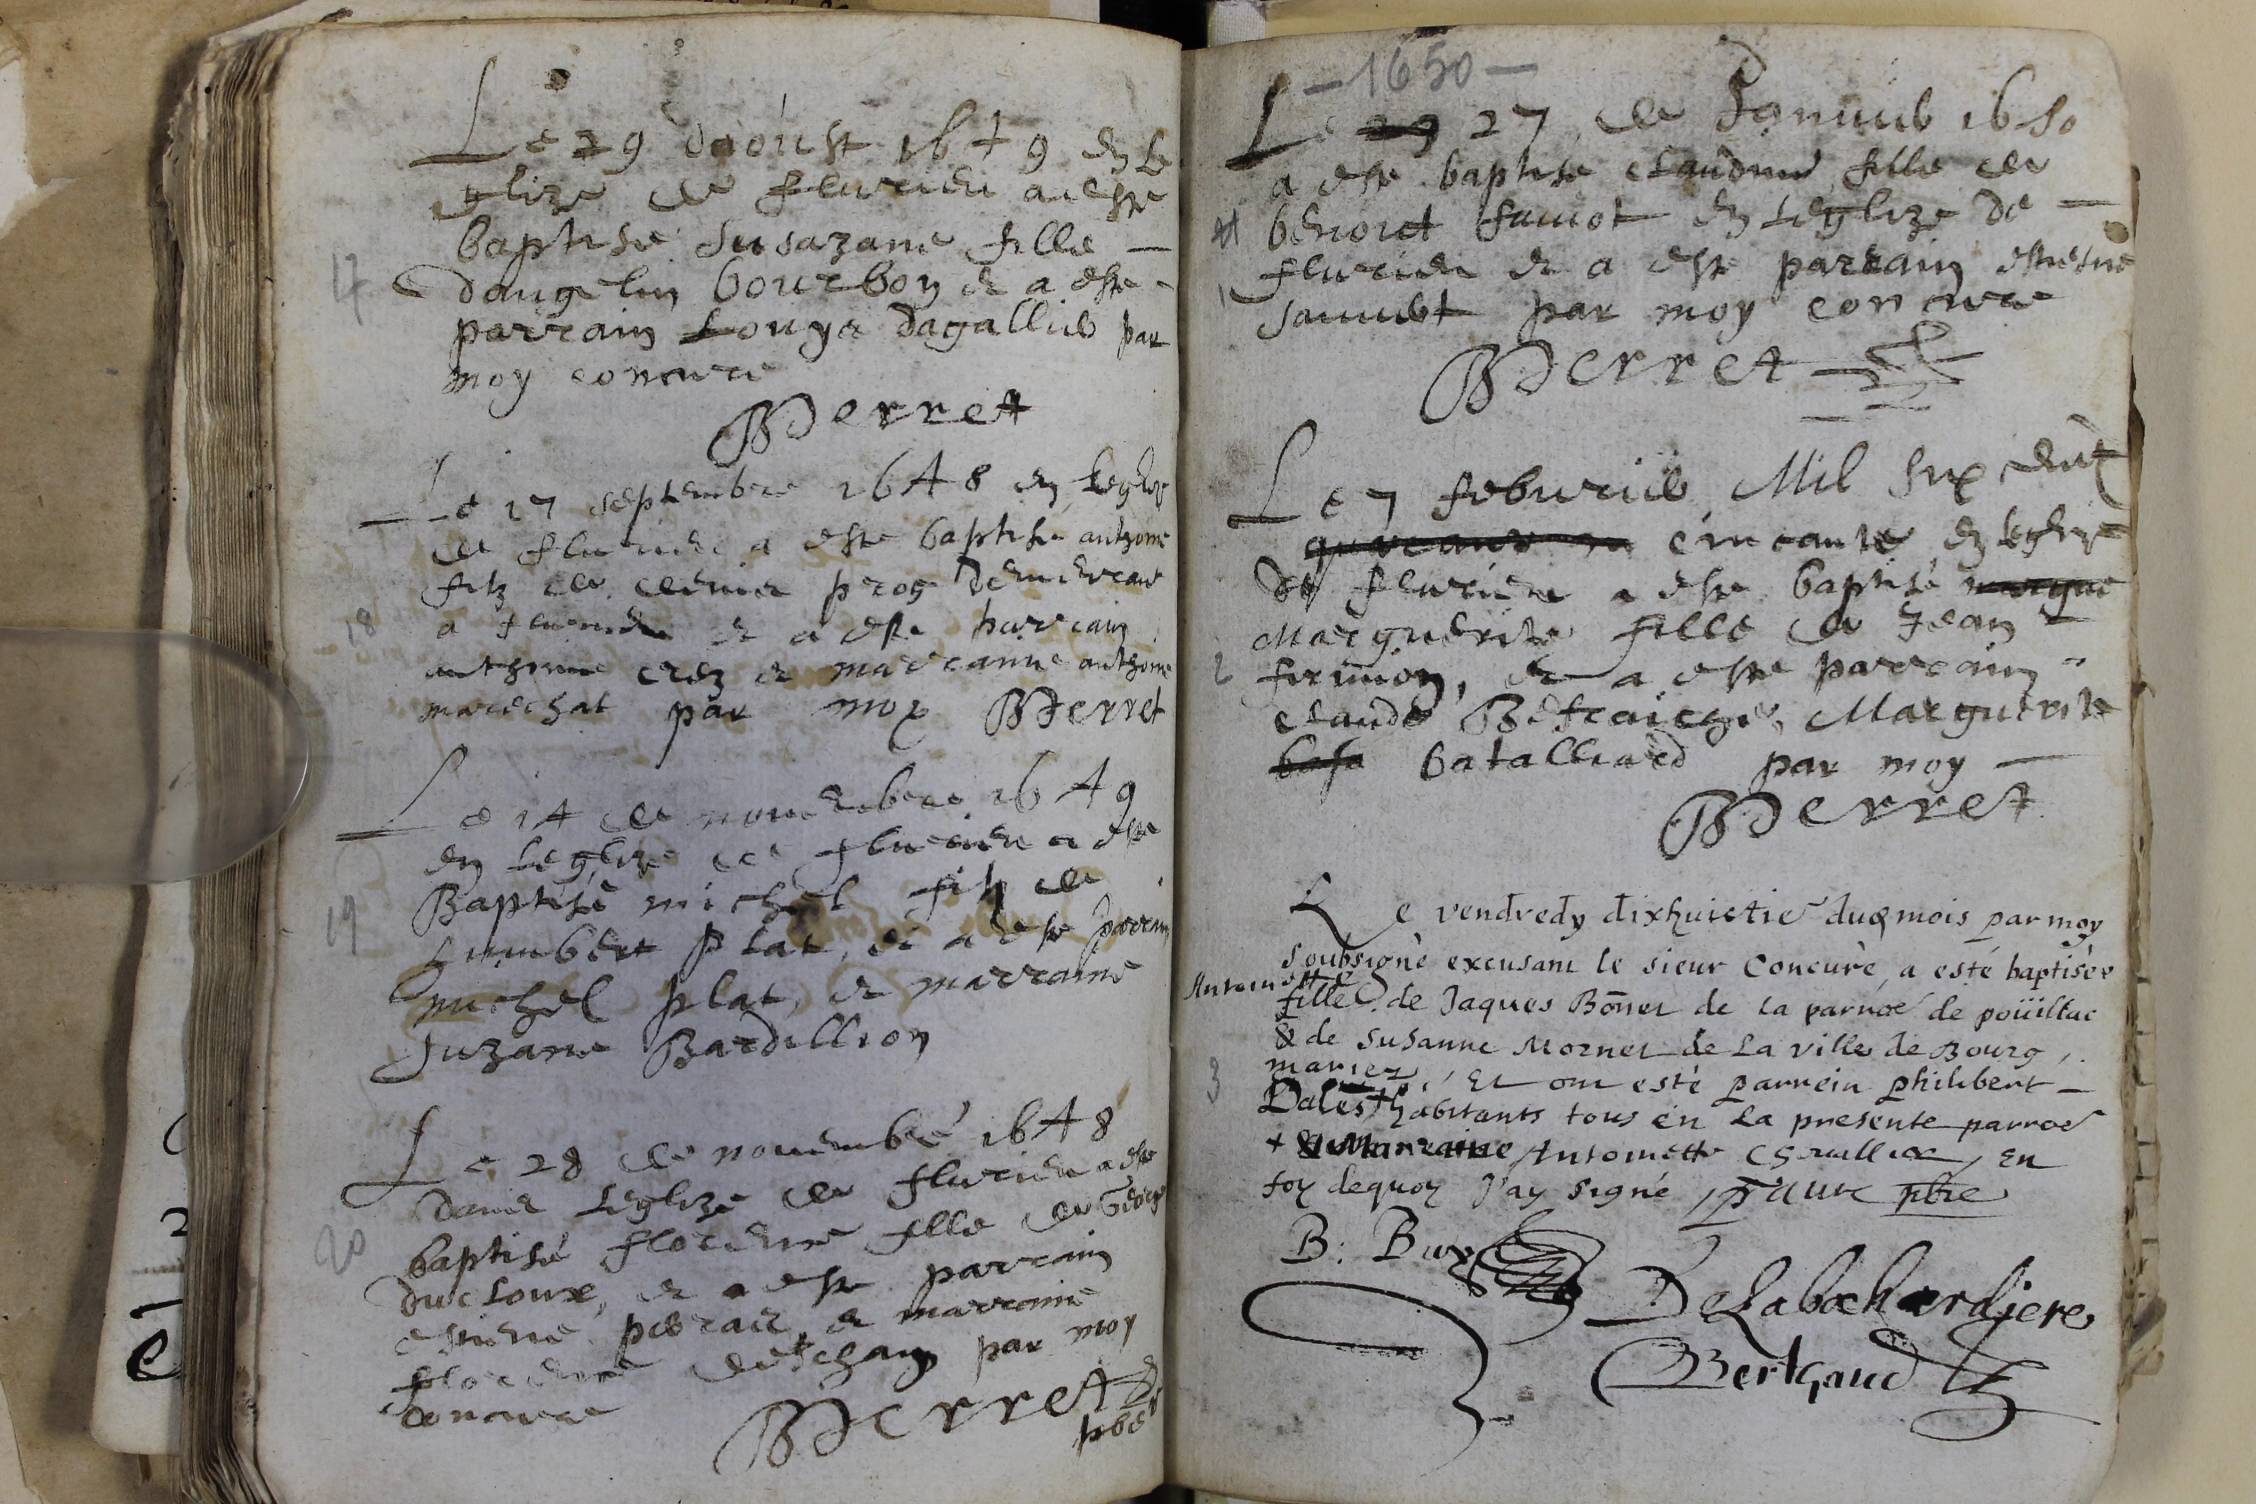 Le 29 daoust 1649 en le
glize de flurieu a este
baptisé Susazane fille —
17
dangelin bourbon et a este
parrain Louys dagallier par
moy concure
BDerret
Le 17 septembre 1648 en leglize
de flurieu a este baptisé anthoine
filz de
18
a flurieu et a este parrain
anthoine et marranne anthoine
marechat par moy BDerret
Le 14 de novembre 1649
en leglize de flurieu a este
Baptisé michel filz de
19
humbert plat, et a este parrain
michel plat, et marraine
Suzane Bardillion
Le 28 de novembre 1648
dans leglize de flurieu a este
20
baptisé florence fille de George
ducloux, et a este parrain
estiene perrat et marraine
florence deschamp par moy
concure
BDerret
pbr
— 1650 —
Le 27 de Janvier 1650
a este baptisé claudine fille de
benoict faviot en leglize de —
flurieu et a este parrain estiene
1
Janvert par moy concure
BDerret
Le 7 febvrier Mil Six cent
cincante en leglize
de flurieu a este baptisé
Marguerite fille de Jean
2
firmion, et a este parrain
claude Befraiche, Marguerite
batalliard par moy —
BDerret
Le vendredy dixhuictie duq mois par moy
soubsigné excusant le sieur Concuré, a esté baptisée
Antoinette
fille de Jaques Bonet de la parroe de poüillac
& de Susanne Mornet de la ville de Bourg,
mariez, Et ont esté parrein philibert —
3
Dales habitants tous en la presente parroe
+ & Marraine Antoinette Chevallier, en
foy dequoy J'ay signé, pbre
B. Buy
DeLabachardiere
Berthaud